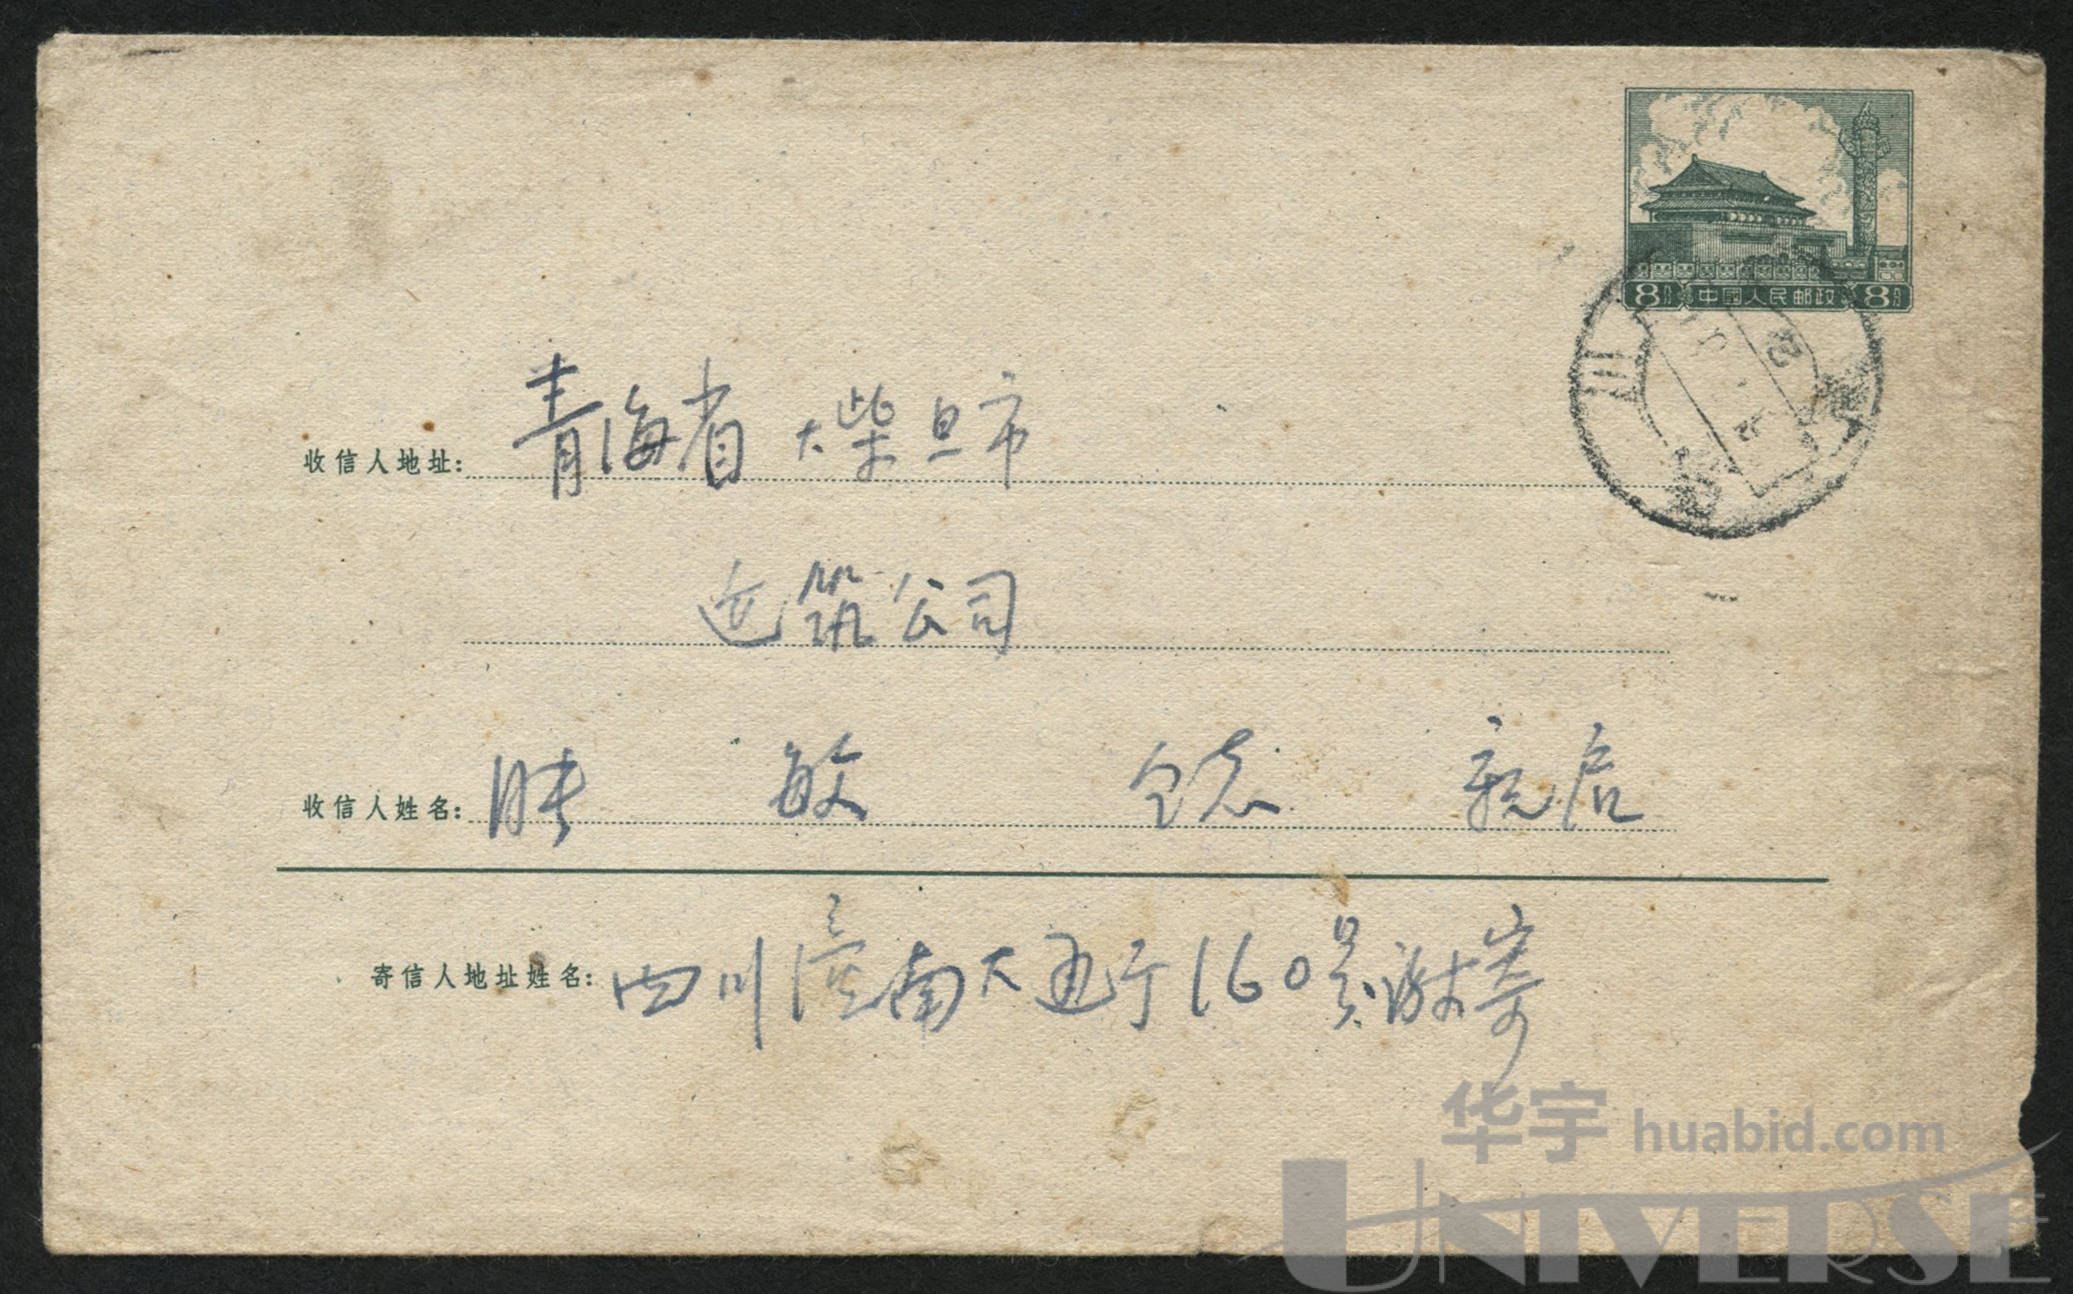 8分 中國人民邮政 8分
收信人地址: 青海省大柴旦市
建筑公司
收信人姓名: 张敏 同志 亲启
寄信人地址姓名: 四川潼南大通厅160号谢寄
华宇 huabid.com
UNIVERSE